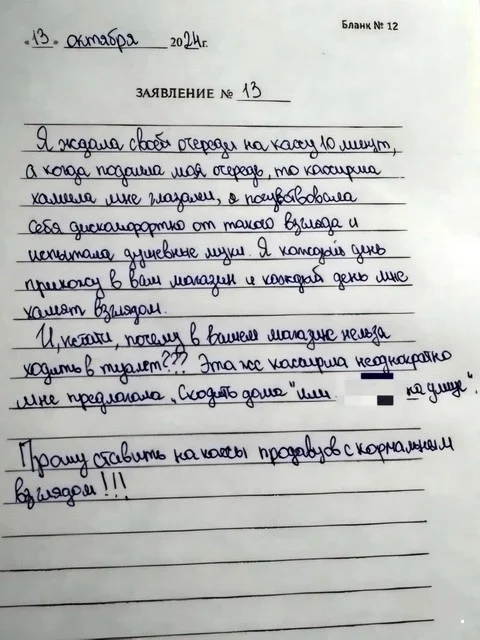 Бланк № 12
"13" октября 2024г.
ЗАЯВЛЕНИЕ № 13
Я ждала своей очереди на кассу 10 минут,
а когда подошла моя очередь, то кассирша
хамила мне глазами, я почувствовала
себя дискомфортно от такого взгляда и
испытала душевные муки. Я каждый день
прихожу в ваш магазин и каждый день мне
хамят взглядом.
И, кстати, почему в вашем магазине нельзя
ходить в туалет??? Эта же кассирша неоднократно
мне предлагала „Сходить дома" или на улице".
Прошу ставить на кассы продавцов с нормальным
взглядом!!!